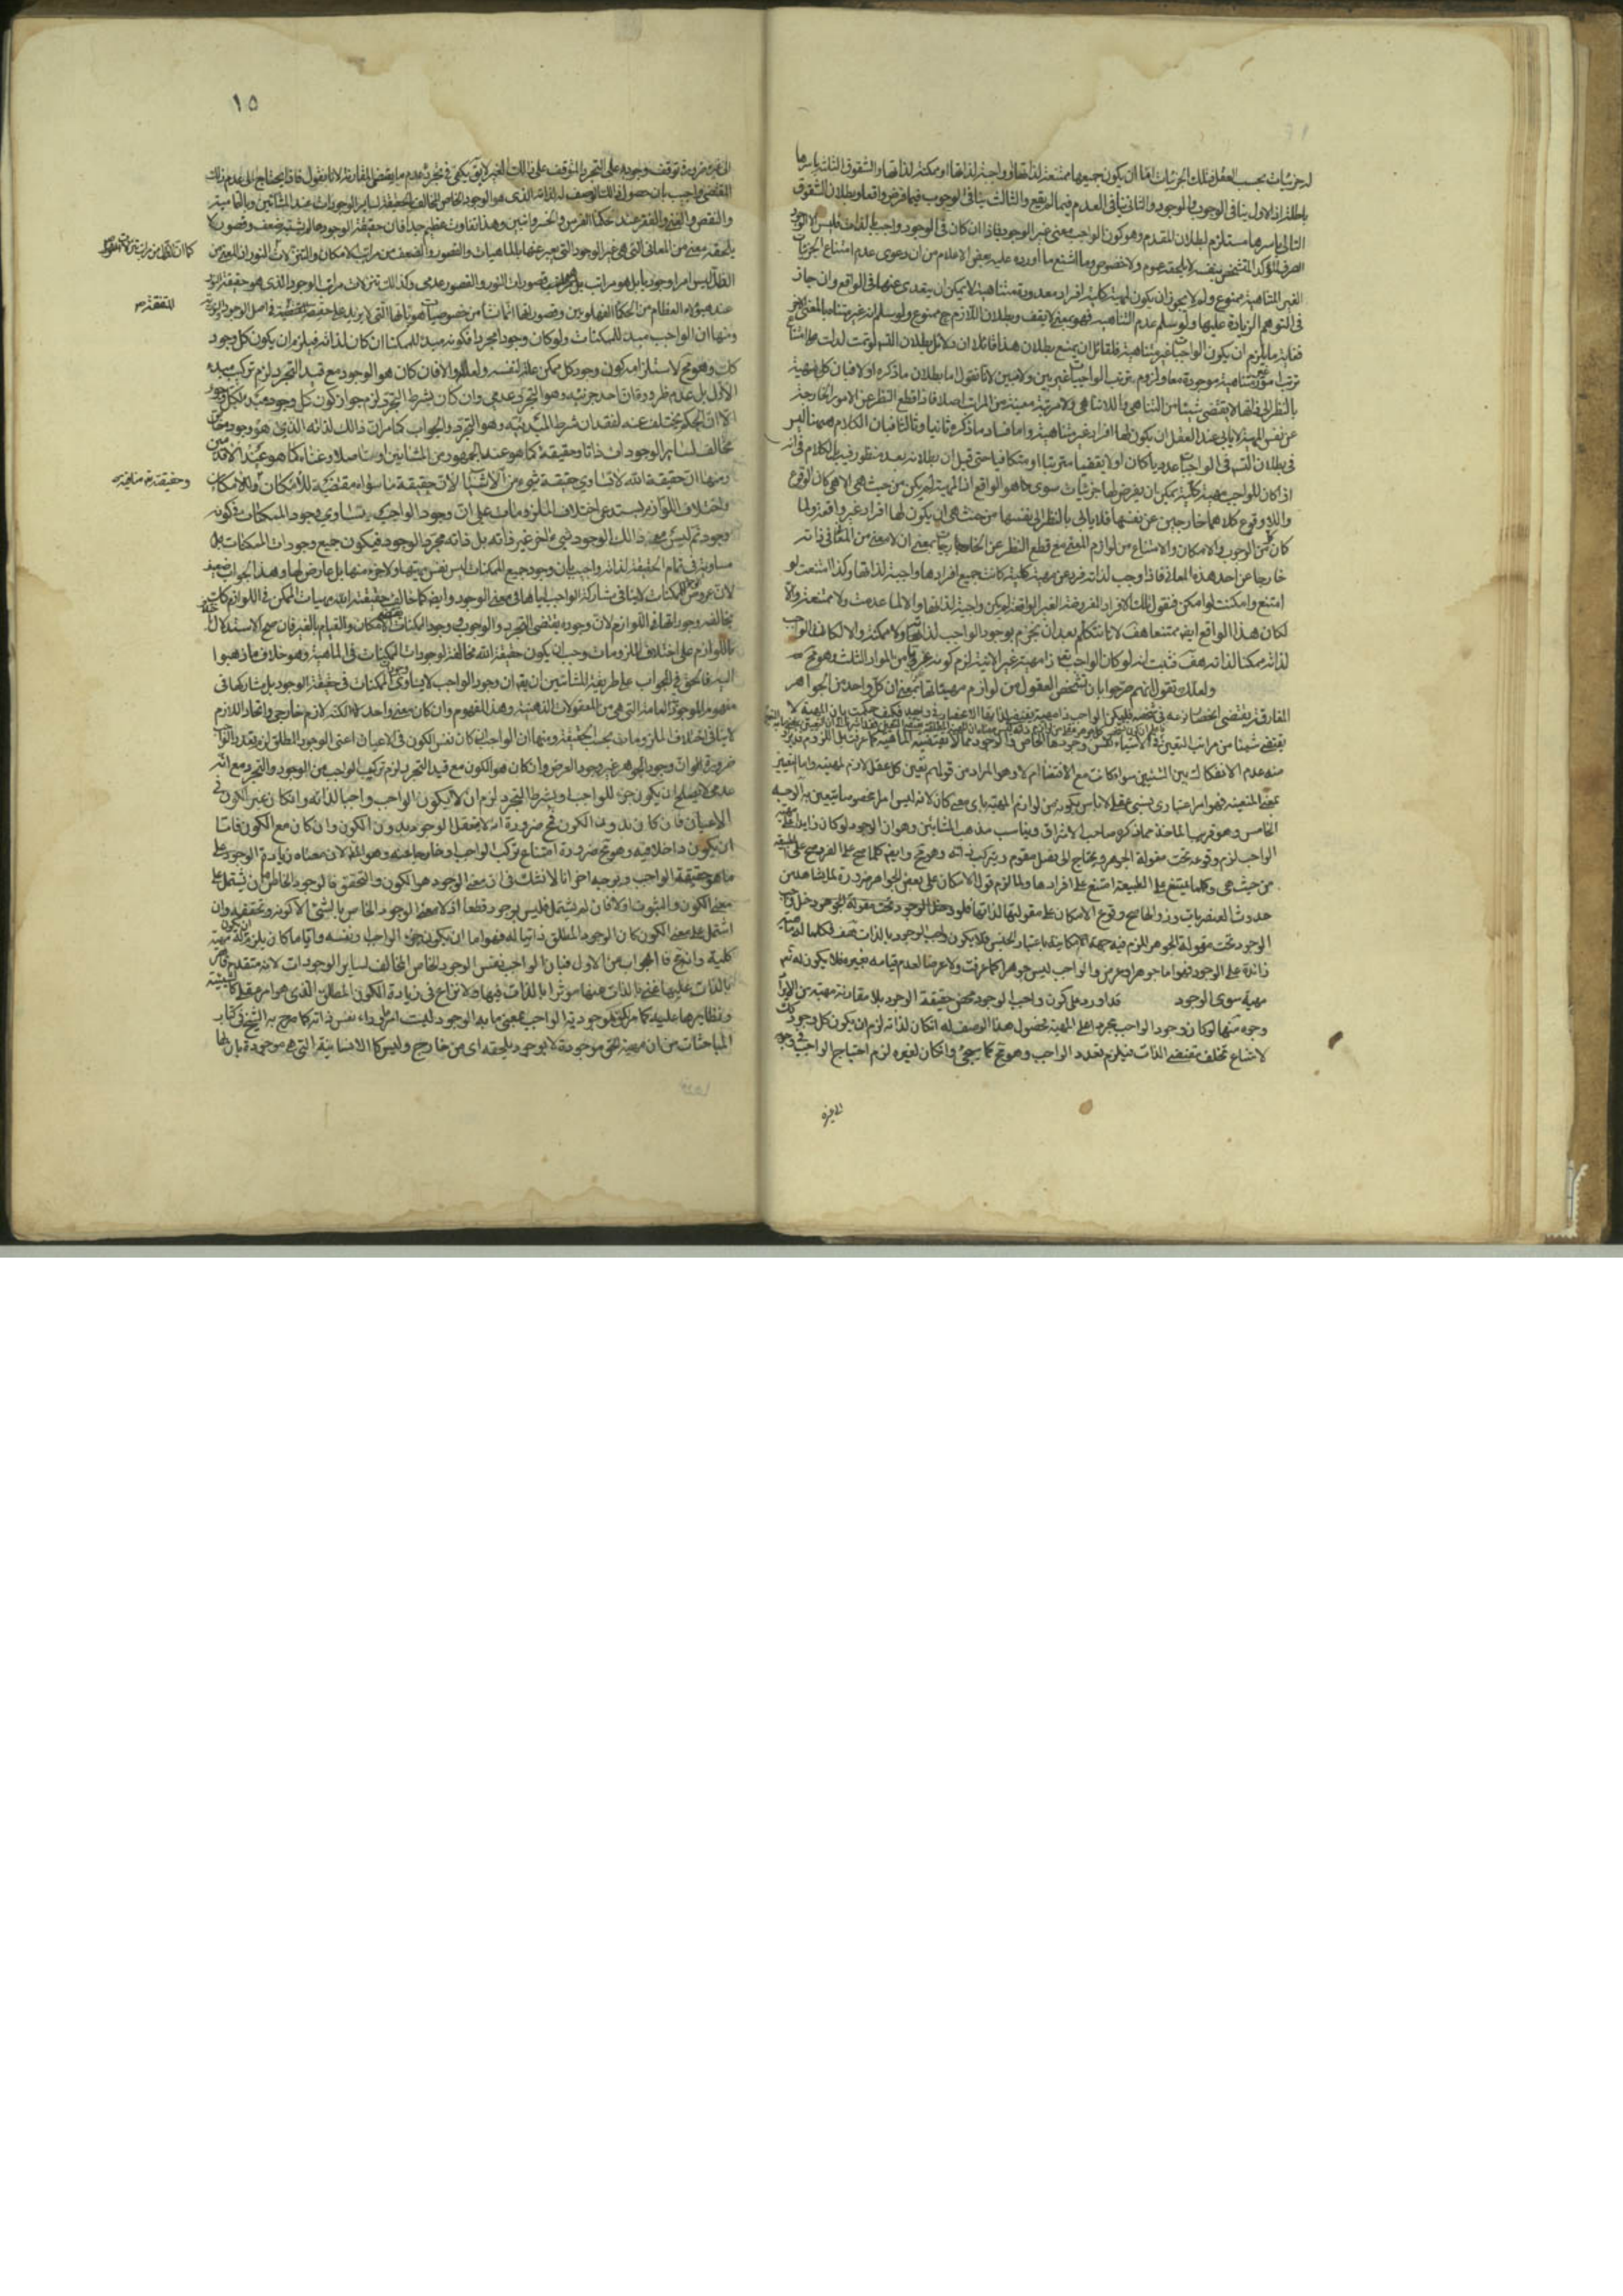 له جزئيات بحسب العقل فتلك الجزئيات اما ان يكون جميعها ممتنعة لذاتها او واجبة لذاتها او ممكنة لذاتها والشقوق الثلث باسرها
باطلة اذ الاول ينافى الوجوب والوجود والثانى ينافى العدم فيما لم يقع والثالث ينافى الوجوب فيما فرض واقعا وبطلان الشقوق
التالى باسرها مستلزم لبطلان المقدم وهو كون الواجب معنى غير الوجود فاذا ان كان فى الوجود واجب بالذات فليس الا الوجود
الصرف المتأكد المتشخص بنفسه لا يلحقه عموم ولا خصوص وما اشنع ما أورده عليه بعض الاعلام من ان دعوى عدم امتناع الجزئيات
الغير المتناهية ممنوع ولم لا يجوز ان يكون لمهية كلية افراد معدودة متناهية لا يمكن ان يتعدى عنها فى الواقع وان جاز
فى التوهم الزيادة عليها ولو سلم عدم التناهى فهو بمعنى لا يقف وبطلان اللازم ح ممنوع ولو سلم انه غير متناه بالمعنى الاخر
فغاية ما يلزم ان يكون الواجبات غير متناهية فلقائل ان يمنع بطلان هذا قائلا ان دلائل بطلان التسلسل لو تمت لدلت على امتناع
ترتب امور غير متناهية موجودة معا ولزوم ترتب الواجبات غير بين ولا مبين لانا نقول اما بطلان ما ذكره اولا فبان كل مهية
بالنظر الى ذاتها لا يقتضى شيئا من التناهى واللاتناهى ولا مرتبة معينة من المراتب اصلا فاذا قطع النظر عن الامور الخارجة
عن نفس المهية لا يأبى عند العقل ان يكون لها افراد غير متناهية واما فساد ما ذكره ثانيا وثالثا فبان الكلام ههنا ليس
فى بطلان التسلسل فى الواجبات عدديا كان او لا يقفيا مترتبا او متكافيا حتى قيل ان بطلانه بعد منظور فيه بل الكلام فى انه
اذا كان للواجب مهية كلية يمكن ان يفرض لها جزئيات سوى ما هو الواقع اذ المهية لم يكن من حيث هى الا هى كان الوقوع
واللاوقوع كلاهما خارجين عن نفسها فلا يأبى بالنظر الى نفسها من حيث هى ان يكون لها افراد غير واقعة ولما
كان كل من الوجوب والامكان والامتناع من لوازم المعنى مع قطع النظر عن الخارجيات بمعنى ان لا معنى من المعانى فى ذاته
خارجا عن احد هذه المعانى فاذا وجب لذاته فرد من مهية كلية كانت جميع افرادها واجبة لذاتها وكذا امتنعت لو
امتنع وامكنت لو امكن فنقول تلك الافراد المفروضة الغير الواقعة لم يكن واجبة لذاتها والا لما عدمت ولا ممتنعة والا
لكان هذا الواقع ايضا ممتنعا هف لانا نتكلم بعد ان نجزم بوجود الواجب لذاته ولا ممكنة والا لكان الواجب
لذاته ممكنا لذاته هف فثبت انه لو كان الواجب تعالى ذا مهية غير الانية لزم كونه من المواد الثلث وهو مح
ولعلك تقول انهم صرحوا بان تشخص العقول من لوازم مهياتها بمعنى ان كل واحد من الجواهر
المفارقة يقتضى انحصار نوعه فى شخصه فليكن الواجب ذا مهية يقتضى لذاتها الانحصار فى واحد فكيف حكمت بان المهية لا
يقتضى شيئا من مراتب التعين
منه عدم الانفكاك بين الشيئين سواء كانت مع الاقتضاء ام لا وهو المراد من قولهم تعين كل عقل لازم لمهيته واما التعين
بمعنى المتعينية فهو امر اعتبارى نسبى عقلى لا باس بكونه من لوازم المهية باى معنى كان لانه ليس امرا مخصوصا يتعين به الوجه
الخامس وهو قريب الماخذ مما ذكره صاحب الاشراق ويناسب مذهب المشائين وهو ان الوجود لو كان زايدا على مهية
الواجب لزم وقوعه تحت مقولة الجوهر ويحتاج الى فصل مقوم ويتركب ذاته وهو مح وايضا كلما صح على الفرد صح على الطبيعة
من حيث هى وكلما يمتنع على الطبيعة امتنع على افرادها ولما لزم قول الامكان على بعض الجواهر ضرورة لما يشاهد من
حدوث العنصريات وزوالها صح وقوع الامكان على مقولتها لذاتها فلو دخل الوجود تحت مقولة الجوهر دخل واجب
الوجود تحت مقولة الجوهر للزم فيه جهة الامكانية باعتبار الجنس فلا يكون واجب الوجود بالذات هف فكلما له مهية
زائدة على الوجود فهو اما جوهر او عرض والواجب ليس جوهرا كما عرفت ولا عرضا لعدم قيامه بغيره فلا يكون له
مهية سوى الوجود قد اورد على كون واجب الوجود محض حقيقة الوجود بلا مقارنة مهية من الايراد
وجوه منها لو كان وجود الواجب مجردا عن المهية فحصول هذا الوصف له ان كان لذاته لزم ان يكون كل وجود كك
لامتناع تخلف مقتضى الذات فيلزم تعدد الواجب وهو مح كما سيجئ وان كان لغيره لزم احتياج الواجب فى وجوبه
الى غيره
١٥
الى غيره ضرورة توقف وجوبه على التجرد المتوقف على ذلك الغير لا يقال يكفى فى تجرده عدم ما يقتضى المقارنة لانا نقول فاذا يحتاج الى عدم ذلك
المقتضى واجيب بان حصول ذلك الوصف له لذاته الذى هو الوجود الخاص المخالف الحقيقة لساير الوجودات عند المشائين وبالتمامية
والنقص والغنى والفقر عند حكماء الفرس والخسروانيين وهذا تفاوت عظيم جدا فان حقيقة الوجود ما لم يشبه ضعف وقصور لا
يلحقه معنى من المعانى التى هى غير الوجود التى يعبر عنها بالماهيات والقصور والضعف من مراتب الامكان والتنزلات
الظل ليس امرا وجوديا بل هو من مراتب قصورات النور والقصور عدمى وكذلك تنزلات مراتب الوجود الذى هو حقيقة النور
عند هؤلاء العظام من الحكماء الفهلويين وقصوراتها انما تنشأ من خصوصيات هوياتها التى لا يزيد على حقيقتها المتفقة فى اصل الوجود والنورية
ومنها ان الواجب مبدء للممكنات فلو كان وجودا مجردا فكونه مبدء للممكنات ان كان لذاته فيلزم ان يكون كل وجود
كك وهو مح لاستلزامه كون وجود كل ممكن علة لنفسه ولعلله والا فان كان هو الوجود مع قيد التجرد لزم تركب مبدء
الاول بل عدمه ضرورة ان احد جزئيه وهو التجرد عدمى وان كان بشرط التجرد لزم جواز كون كل وجود مبدء لكل وجود
الا ان الحكم تخلف عنه لفقدان شرط المبدئية وهو التجرد والجواب كما مر ان ذلك لذاته الذى هو وجود خاص
مخالف لساير الوجودات ذاتا وحقيقة كما هو عند الجمهور من المشائين او تأصلا وغناء كما هو عند الاقدمين
ومنها ان حقيقة الله لا تساوى حقيقة شئ من الاشياء لان حقيقة ما سواه مقتضية للامكان
واختلاف اللوازم يستدعى اختلاف الملزومات على ان وجود الواجب يساوى وجود الممكنات فى كونه
وجودا ثم ليس معه ذلك الوجود شئ اخر غير ذاته بل ذاته مجرد الوجود فيكون جميع وجودات الممكنات
مساوية فى تمام الحقيقة لذاته واجيب بان وجود جميع الممكنات ليس نفس مهيتها ولا جزء منها بل عارض لها وهذا الجواب ضعيف
لان عروض الوجود للممكنات لا ينافى مشاركة الواجب اياها فى معنى الوجود وايضا كما خالف حقيقة الله مهيات الممكن فى اللوازم كك
يخالف وجوداتها فى اللوازم لان وجوده يقتضى التجرد والوجوب ووجود الممكنات يقتضى الامكان والقيام بالغير فان صح الاستدلال
باللوازم على اختلاف الملزومات وجب ان يكون حقيقة الله مخالفة لوجودات الممكنات فى الماهية وهو خلاف ما ذهبوا
اليه فالحق فى الجواب على طريقة المشائين ان يقال ان وجود الواجب لا يساوى وجود الممكنات فى حقيقة الوجود بل يشاركها فى
مفهوم الموجودية العامة التى هى من المعقولات الذهنية وهذا المفهوم وان كان معنى واحدا لكنه لازم خارجى واتحاد اللازم
لا ينافى اختلاف الملزومات بحسب الحقيقة ومنها ان الواجب ان كان نفس الكون فى الاعيان اعنى الوجود المطلق لزم تعدد الواجب
ضرورة ان وجود الجوهر غير وجود العرض وان كان هو الكون مع قيد التجرد لزم تركب الواجب من الوجود والتجرد مع انه
عدمى لا يصلح ان يكون جزء للواجب او بشرط التجرد لزم ان لا يكون الواجب واجبا لذاته وان كان غير الكون فى
الاعيان فان كان بدون الكون مح ضرورة انه لا يعقل الوجود بدون الكون وان كان مع الكون فاما
ان يكون داخلا فيه وهو مح ضرورة امتناع تركب الواجب او خارجا عنه وهو المط لان معناه زيادة الوجود على
ما هو حقيقة الواجب وتوجيه اخر انا لا نشك فى ان معنى الوجود هو الكون والتحقق فالوجود الخاص اما ان يشتمل على
معنى الكون والثبوت او لا فان لم يشتمل فليس بوجود قطعا اذ لا معنى للوجود الخاص بالشئ الا كونه وتحققه وان
اشتمل على معنى الكون كان الوجود المطلق ذاتيا له فهو اما ان يكون جزء الواجب او نفسه وايا ما كان يلزم ان يكون له مهية
كلية والجواب عن الاول فبان الواجب نفس الوجود الخاص المخالف لساير الوجودات لانه متقدم
بالذات عليها غنى بالذات عنها مؤثر بالذات فيها ولا نزاع فى زيادة الكون المطلق الذى هو امر عقلى كالشيئية
ونظايرها عليه كما مر لكن موجودية الواجب بمعنى ما به الوجود ليست امرا وراء نفس ذاته كما صرح به الشيخ فى كتاب
المباحثات من ان مهية الحق موجودة لا بوجود يلحقه اى من خارج وليس كالانسانية التى هى موجودة بان لها
وحقيقته تعالى منافية
المتفقة صح